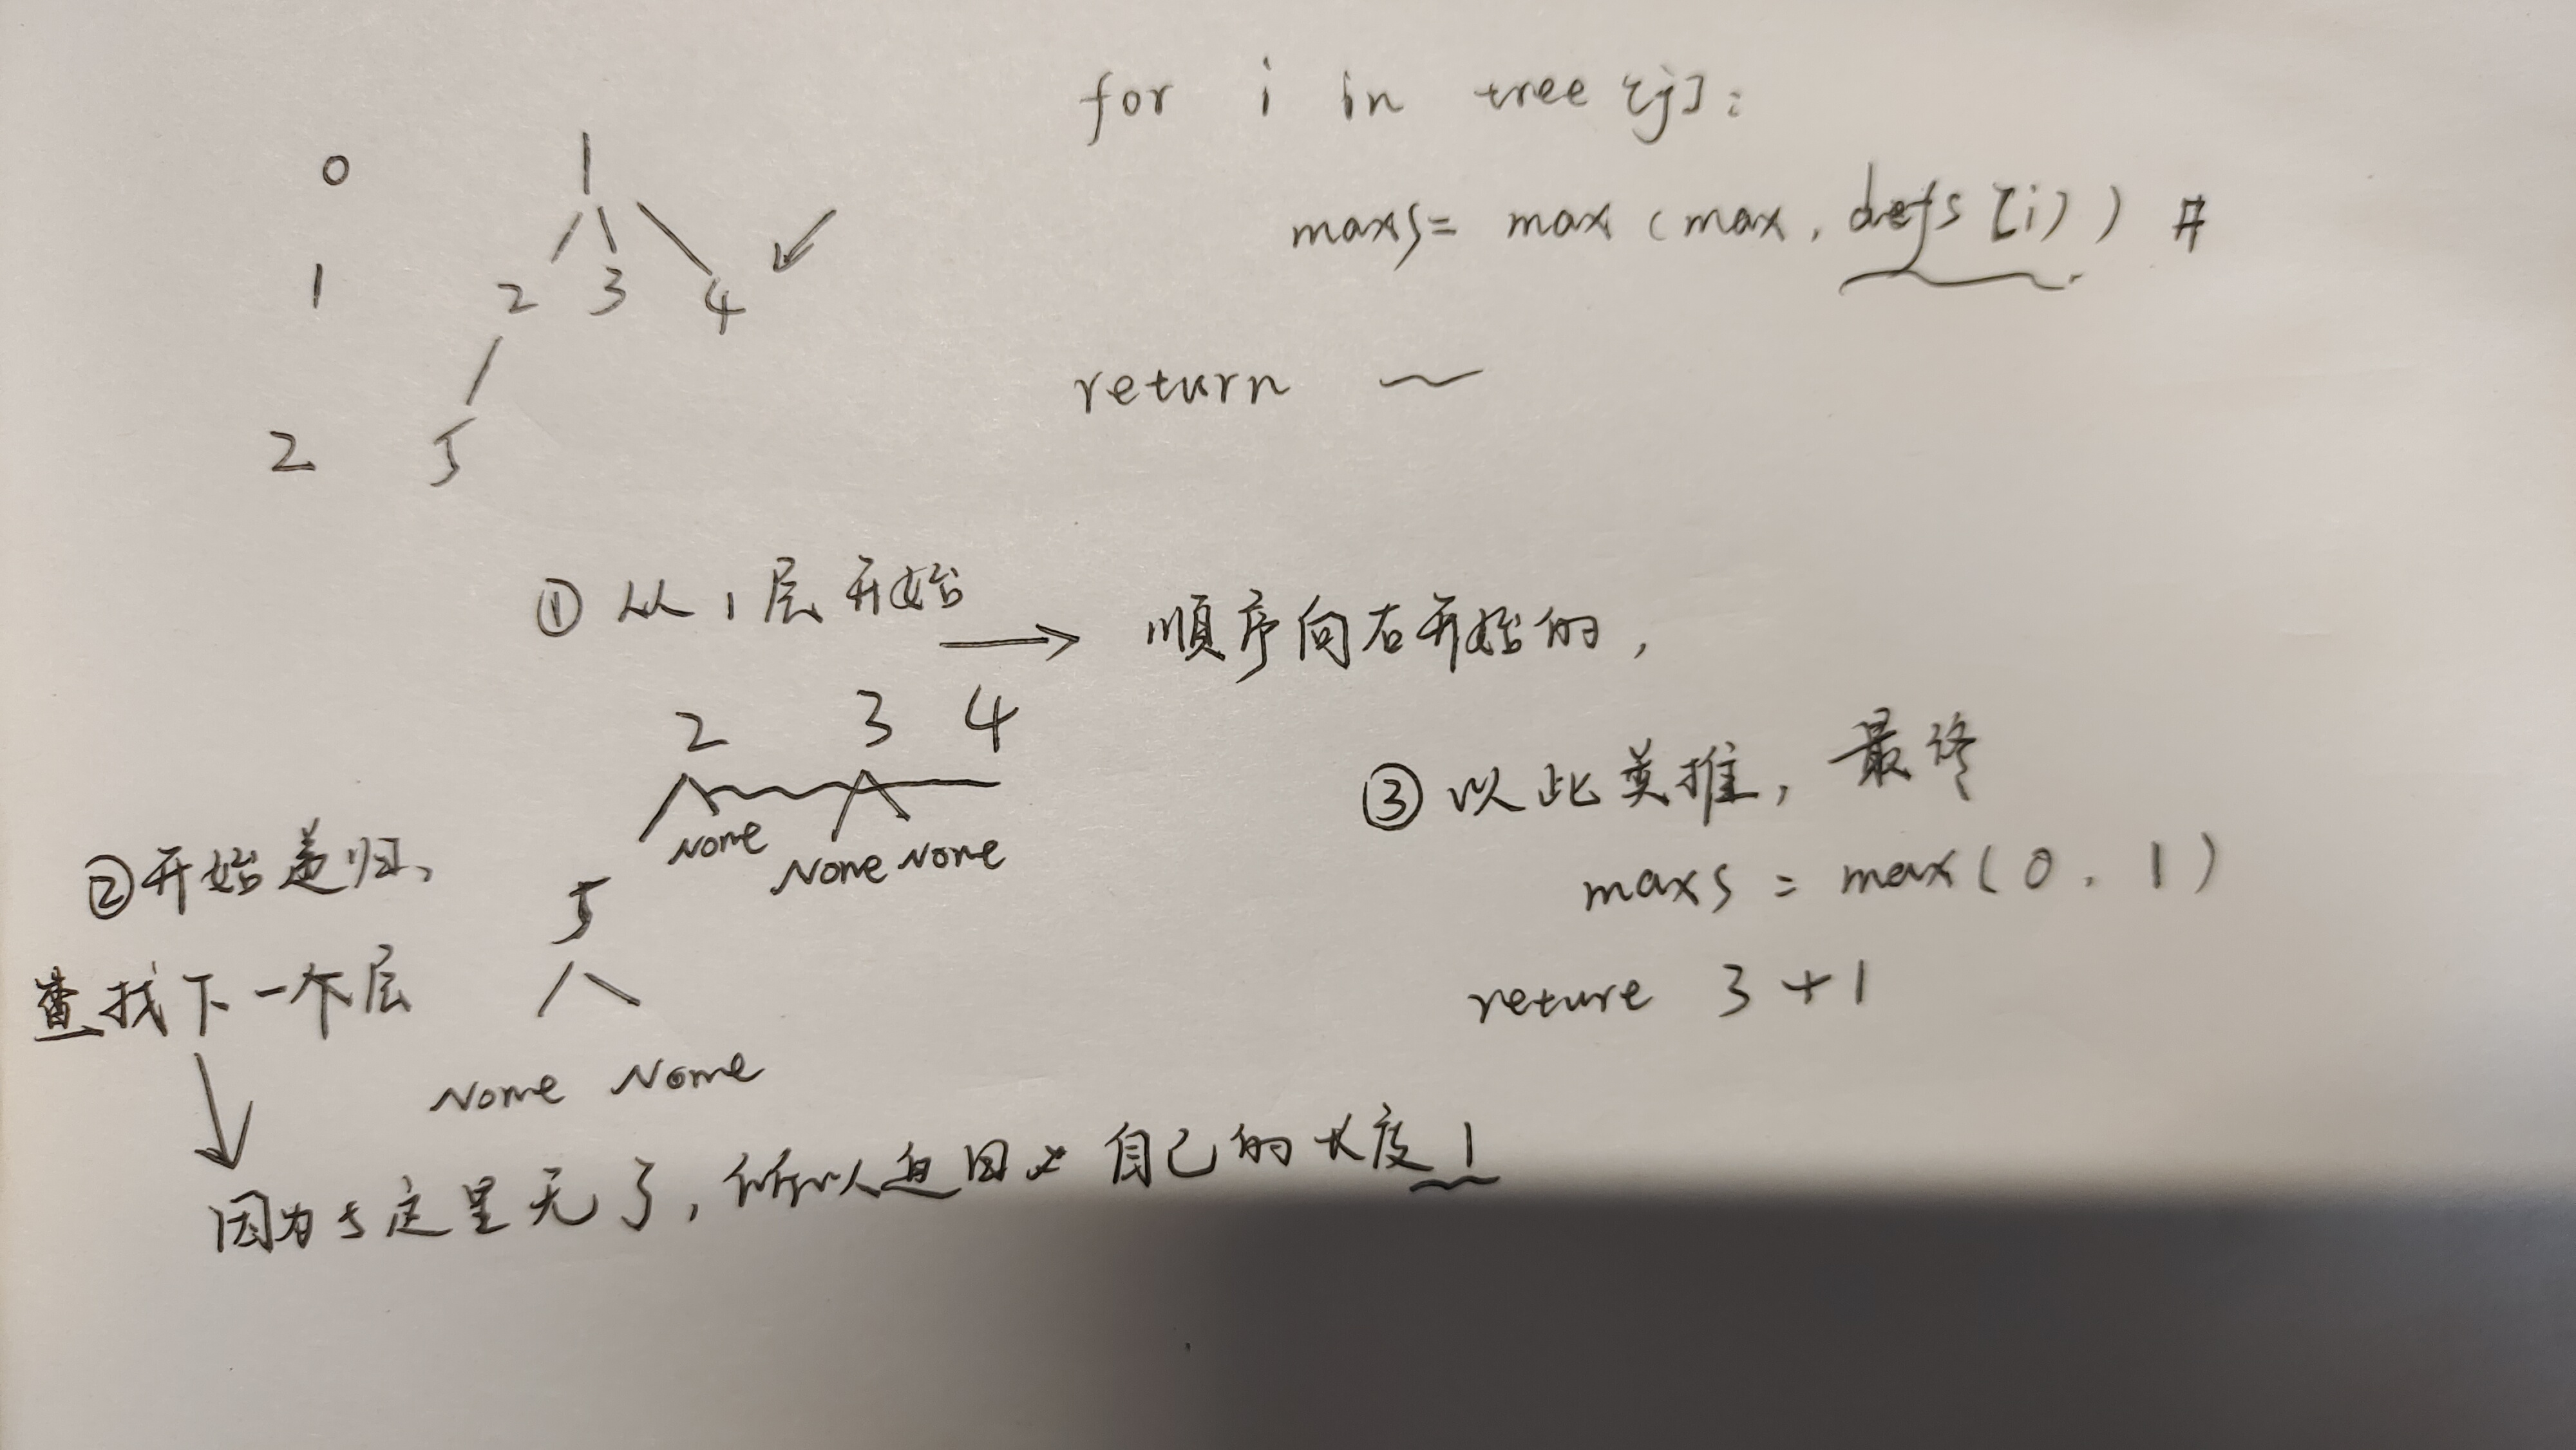 for i in tree[j]:
maxs= max(max, defs[i)) #
return
0 1
1 2 3 4
2 5
① 从1层开始 → 顺序向右开始的,
2 3 4
None None None
② 开始递归、
5
查找下一个层
None None
因为5这里无了, 所以返回 自己的长度 1
③ 以此类推, 最终
maxs = max(0, 1)
reture 3+1